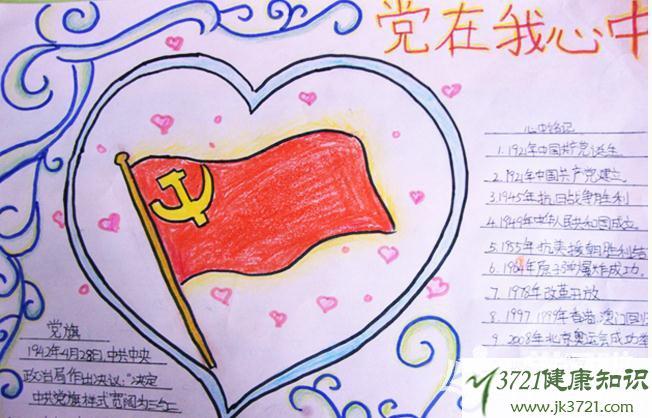 党在我心中
心中铭记
1.1921年中国共产党诞生
2.1921年中国共产党建立
3.1945年抗日战争胜利
4.1949年中华人民共和国成立
5.1955年抗美援朝胜利结
6.1964年原子弹爆炸成功.
7.1978年改革开放
8.1997 1999年香港澳门回归
9.2008年北京奥运会成功举
党旗
1942年4月28日,中共中央
政治局作出决议:"决定
中共党旗样式宽阔为三与二
3721健康知识
www.jk3721.com